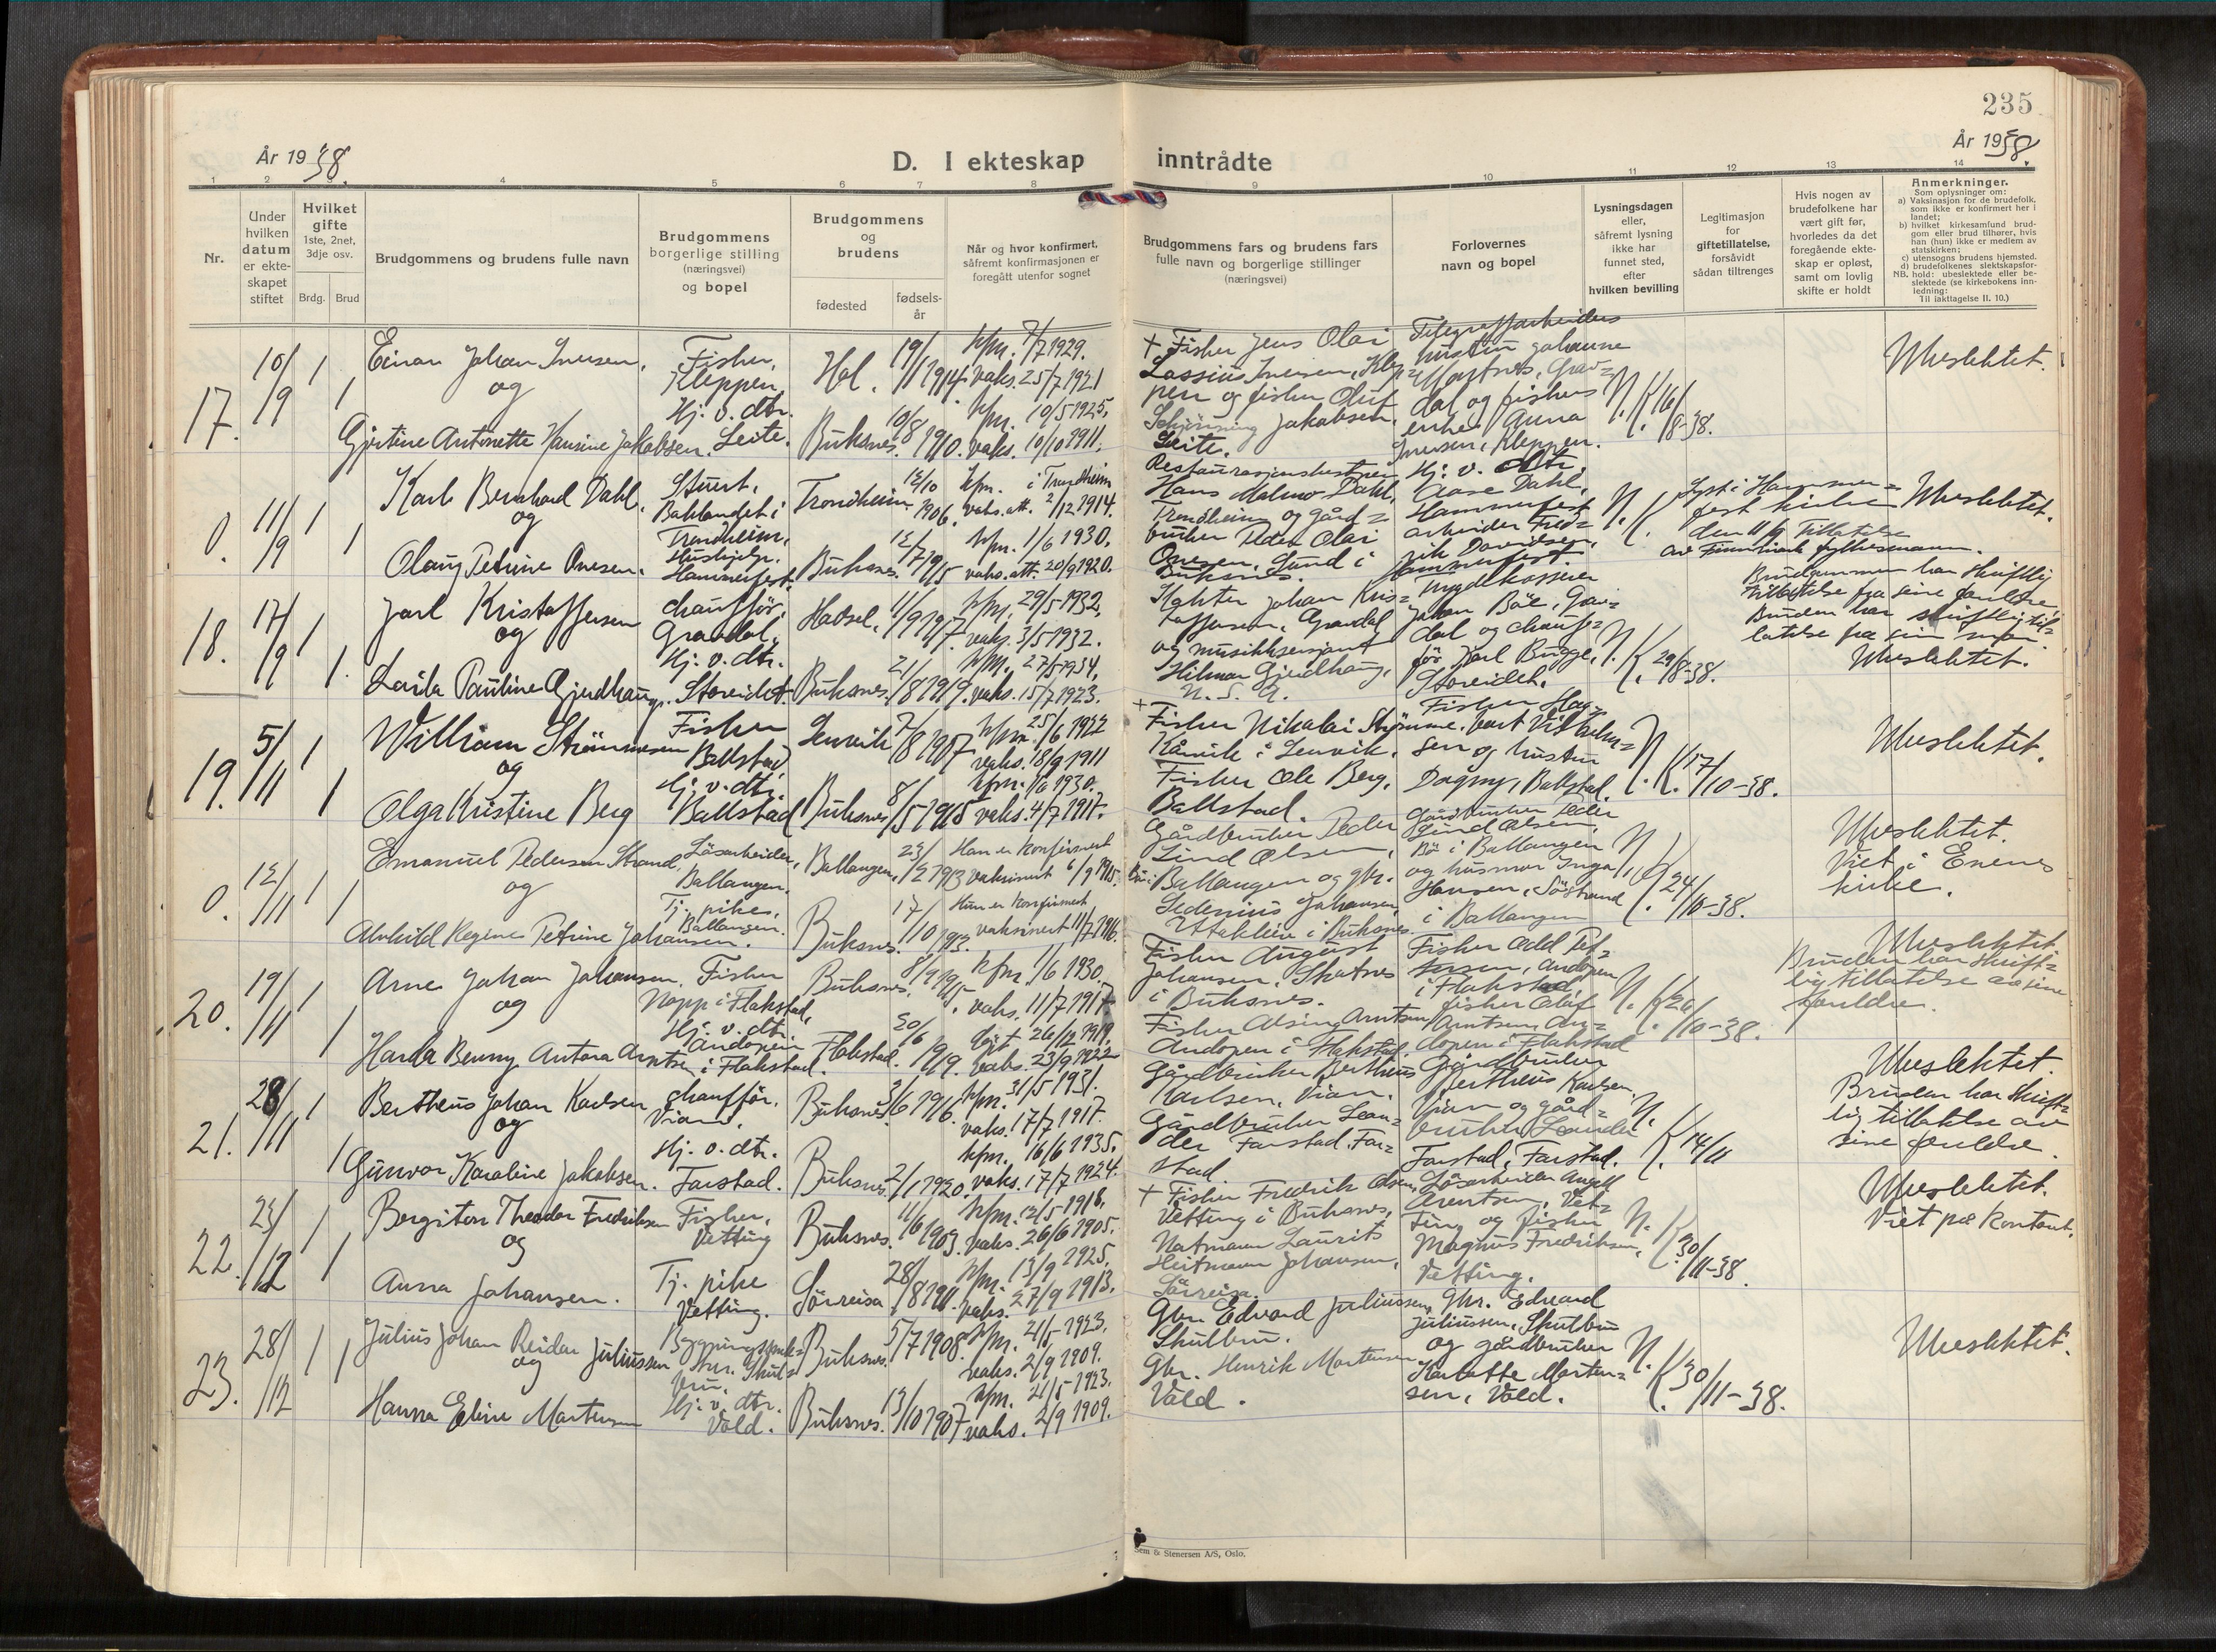 235
År 1938.
D. I ekteskap inntrådte
År 1938.
1 2 3 4 5 6 7 8 9 10 11 12 13 14
Nr.
Under
hvilken
datum
er ekte-
skapet
stiftet
Hvilket
gifte
1ste, 2net,
3dje osv.
Brdg. Brud
Brudgommens og brudens fulle navn
Brudgommens
borgerlige stilling
(næringsvei)
og bopel
Brudgommens
og
brudens
fødested
fødsels-
år
Når og hvor konfirmert,
såfremt konfirmasjonen er
foregått utenfor sognet
Brudgommens fars og brudens fars
fulle navn og borgerlige stillinger
(næringsvei)
Forlovernes
navn og bopel
Lysningsdagen
eller,
såfremt lysning
ikke har
funnet sted,
efter
hvilken bevilling
Legitimasjon
for
giftetillatelse,
forsåvidt
sådan tiltrenges
Hvis nogen av
brudefolkene har
vært gift før,
hvorledes da det
foregående ekte-
skap er opløst,
samt om lovlig
skifte er holdt
Anmerkninger.
Som oplysninger om:
a) Vaksinasjon for de brudefolk,
som ikke er konfirmert her i
landet;
b) hvilket kirkesamfund brud-
gom eller brud tilhører, hvis
han (hun) ikke er medlem av
statskirken;
c) utensogns brudens hjemsted.
d) brudefolkenes slektskapsfor-
NB. hold: ubeslektede eller be-
slektede (se kirkebokens inn-
ledning:
Til iakttagelse II. 10.)
17.
10/9
1
1
Einar Johan Iversen,
og
Gjertine Antonette Hansine Jakobsen.
Fisker,
Kleppen.
Hj. v. dtr.
Leite.
Hol.
19/1 1914.
Buksnes.
10/8 1910.
kfm. 7/7 1929.
vaks. 25/7 1921
kfm. 10/5 1925.
vaks. 10/10 1911.
+ Fisker Jens Olai
Lassius Iversen, Klep-
pen og fisker Oluf
Schjönning Jakobsen,
Leite.
Telegrafarbeiders
hustru Johanne
Martnes, Grav-
dal og fiskers
enke Anna
Iversen, Kleppen.
N. K. 16/8-38.
Ubeslektet.
0.
11/9
1
1
Karl Bernhard Dahl,
og
Olaug Petrine Ovesen.
Stuert,
Baklandet i
Trondheim,
Hushjelp.
Hammerfest.
Trondheim
12/10 1906.
Buksnes.
12/7 1915
kfm. i Trondheim
vaks. att. 2/12 1914.
kfm. 1/6 1930.
vaks. att. 20/9 1920.
Restaurasjonsbestyrer
Hans Malmo Dahl,
Trondheim og gård-
bruker Peder Olai
Ovesen, Sund i
Buksnes.
Hj. v. dtr.
Aase Dahl,
Hammerfest
arbeider Fred-
rik Davidsen,
Hammerfest.
N. K.
Lyst i Hammer-
fest kirke
den 11/9 Tillatelse
av Finnmark fylkesmann.
Ubeslektet.
18.
17/9
1
1.
Jarl Kristoffersen
og
Laila Pauline Gjerdhaug.
chaufför,
Gravdal.
Hj. v. dtr.
Storeidet.
Hadsel.
11/9 1917.
Buksnes.
21/8 1919.
kfm. 29/5 1932.
vaks. 3/5 1932.
kfm. 27/5 1934.
vaks. 15/7 1923.
Slakter Johan Kris-
toffersen, Gravdal
og musikksersjant
Hilmar Gjerdhaug,
U. S. A.
Trygdekasserer
Johan Böe, Grav-
dal og chauf-
för Karl Brigge,
Storeidet.
N. K. 29/8-38.
Brudgommen har skriftlig
tillatelse fra sine foreldre,
Bruden har skriftlig til-
latelse fra sin mor.
Ubeslektet.
19.
5/11
1
1
William Strömmesen
og
Olga Kristine Berg
Fisker
Ballstad
Hj. v. dtr.
Ballstad
Lenvik
7/8 1907
Buksnes
8/5 1915
kfm. 25/6 1922
vaks. 18/9 1911
kfm. 1/6 1930.
vaks. 4/7 1917.
+ Fisker Nikolai Strömme,
Kårvik i Lenvik.
Fisker Ole Berg,
Ballstad.
Fisker Hag-
bart Vilhelm-
sen og hustru
Dagny, Ballstad.
N. K. 17/10-38.
Ubeslektet.
0.
12/11
1
1
Emanuel Pedersen Strand,
og
Alvhild Regine Petrine Johansen.
Lösarbeider,
Ballangen.
Tj. pike,
Ballangen.
Ballangen,
23/2 1913
Buksnes.
17/10 1913.
Han er konfirmert
vaksinert 6/9 1915.
Hun er konfirmert
vaksinert 11/7 1916.
Gårdbruker Peder
Lind Olsen, Bö i
Ballangen og gbr.
Sedenius Johansen,
Uttakleiv i Buksnes.
Gårdbruker Peder
Lind Olsen,
Bö i Ballangen
og husmor Inga
Hansen, Söstrand
i Ballangen
N. K. 24/10-38.
Ubeslektet.
Viet i Evenes
kirke.
20.
19/11
1
1
Arne Johan Johansen,
og
Harda Benny Antora Arntsen
Fisker
Napp i Flakstad,
Hj. v. dtr.
Andopen
i Flakstad.
Buksnes.
8/9 1915.
Flakstad.
30/6 1919.
kfm. 1/6 1930.
vaks. 11/7 1917
döpt 26/12 1919.
vaks. 23/9 1922
Fisker August
Johansen, Skotnes
i Buksnes.
Fisker Alsing Arntsen
Andopen i Flakstad.
Fisker Odd Pet-
tersen, Andopen
i Flakstad,
fisker Oluf
Arntsen, An-
dopen i Flakstad
N. K. 26/10-38.
Ubeslektet
Bruden har skrift-
lig tillatelse av sine
foreldre.
21.
28/11
1
1
Bertheus Johan Karlsen
og
Gunvor Karoline Jakobsen.
chaufför.
Vian.
Hj. v. dtr.
Farstad.
Buksnes
3/6 1916.
Buksnes.
2/1 1920.
kfm. 31/5 1931.
vaks. 17/7 1917.
kfm. 16/6 1935.
vaks. 17/7 1924.
Gårdbruker Bertheus
Karlsen, Vian.
Gårdbruker Lean-
der Farstad, Far-
stad.
Gårdbruker
Bertheus Karlsen,
Vian og gård-
bruker Leander
Farstad, Farstad.
N. K. 14/11
Ubeslektet.
Bruden har skrift-
lig tillatelse av
sine foreldre.
22.
23/12
1
1
Bergiton Theodor Fredriksen
og
Anna Johansen.
Fisker,
Vetting
Tj. pike
Vetting.
Buksnes.
11/6 1903.
Sörreisa
28/8 1911.
kfm. 12/5 1918.
vaks. 26/6 1905.
kfm. 13/9 1925.
vaks. 27/9 1913.
+ Fisker Fredrik Olsen,
Vetting i Buksnes,
Notmann Laurits
Heitmann Johansen,
Sörreisa.
Lösarbeider Angell
Arentsen, Vet-
ting og fisker
Magnus Fredriksen,
Vetting.
N. K. 30/11-38.
Ubeslektet.
Viet på kontoret.
23.
28/12
1
1
Julius Johan Reidar Juliussen
og
Hanna Eline Martensen
Skul-
bru.
Hj. v. dtr.
Vold.
Buksnes.
5/7 1908.
Buksnes.
13/10 1907
kfm. 21/5 1923.
vaks. 2/9 1909.
kfm. 21/5 1923.
vaks. 2/9 1909.
Gbr. Edvard Juliussen,
Skulbru.
Gbr. Henrik Mortensen
Vold.
Gbr. Edvard
Juliussen, Skulbru
og gårdbruker
Karlotte Morten-
sen, Vold.
N. K. 30/11-38.
Ubeslektet.
Sem & Stenersen A/S, Oslo.